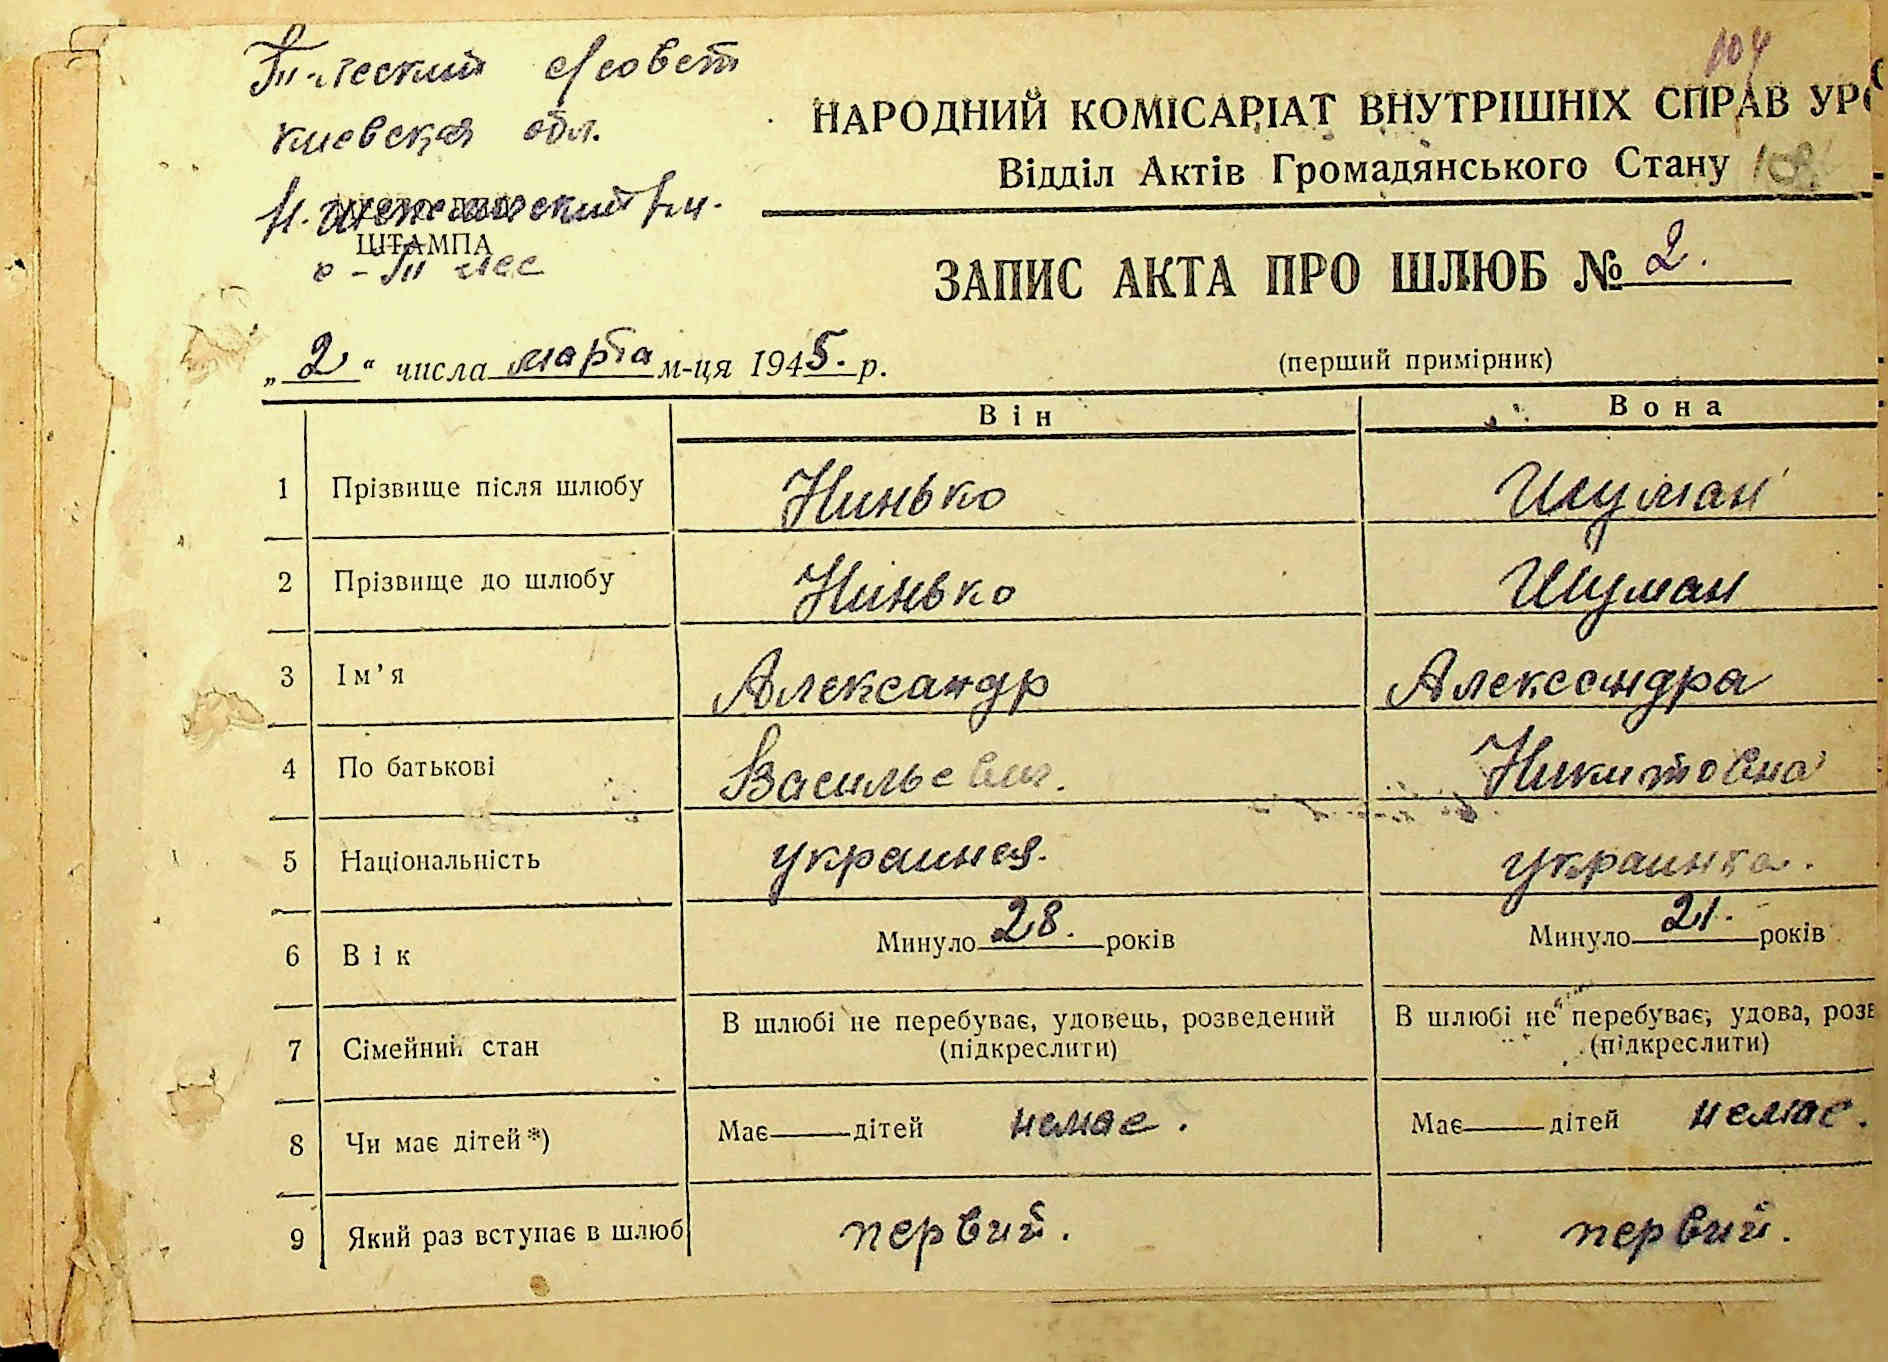 с/совет
киевская обл.
ШТАМПА
104
НАРОДНИЙ КОМІСАРІАТ ВНУТРІШНІХ СПРАВ УРС
Відділ Актів Громадянського Стану
ЗАПИС АКТА ПРО ШЛЮБ № 2.
„ 2 “ числа марта м-ця 1945. р.
(перший примірник)
Він Вона
1 Прізвище після шлюбу Нинько Шуман
2 Прізвище до шлюбу Нинько Шуман
3 Ім’я Александр Александра
4 По батькові Васильевич. Никитовна
5 Національність украинец. украинка.
6 Вік Минуло 28. років Минуло 21. років
7 Сімейний стан В шлюбі не перебуває, удовець, розведений (підкреслити) В шлюбі не перебуває, удова, розв (підкреслити)
8 Чи має дітей *) Має дітей немає. Має дітей немає.
9 Який раз вступає в шлюб первий. первий.